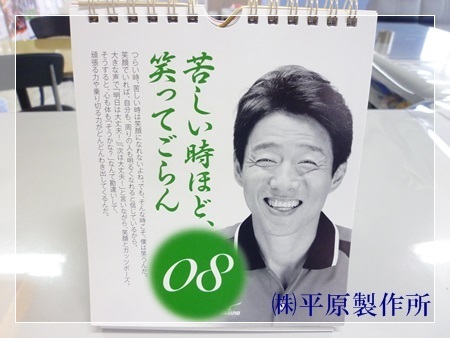 苦しい時ほど、
笑ってごらん
つらい時、苦しい時は笑顔になれないよね。でも、そんな時こそ、僕は笑うんだ。
笑顔でいれば、自分も、周りの人も明るくなれると信じているから。
大きな声で「明日は大丈夫!」「次は大丈夫!」と言いながら、笑顔とガッツポーズ。
そうすると、心も体も「そうかな?」なんて勘違いして、
頑張る力や乗り切る力がどんどんわき出してくるんだ。
08
㈱平原製作所